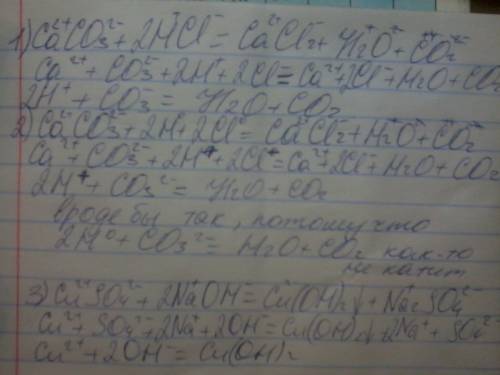 1) Ca²⁺CO₃²⁻ + 2H⁺Cl⁻ = Ca²⁺Cl₂⁻ + H₂⁺O²⁻ + C⁴⁺O₂²⁻
Ca²⁺ + CO₃²⁻ + 2H⁺ + 2Cl⁻ = Ca²⁺ + 2Cl⁻ + H₂O + CO₂
2H⁺ + CO₃²⁻ = H₂O + CO₂
2) Ca²⁺CO₃²⁻ + 2H + 2Cl⁰ = Ca²⁺Cl₂⁻ + H₂⁺O²⁻ + C⁴⁺O₂²⁻
Ca²⁺ + CO₃²⁻ + 2H⁺ + 2Cl⁺ = Ca²⁺ + 2Cl⁻ + H₂O + CO₂
2H⁺ + CO₃²⁻ = H₂O + CO₂
вроде бы так, потому что
2H⁰ + CO₃²⁻ = H₂O + CO₂ как-то
не катит
3) Cu²⁺SO₄²⁻ + 2Na⁺OH⁻ = Cu(OH)₂↓ + Na₂⁺SO₄²⁻
Cu²⁺ + SO₄²⁻ + 2Na⁺ + 2OH⁻ = Cu(OH)₂↓ + 2Na⁺ + SO₄²⁻
Cu²⁺ + 2OH⁻ = Cu(OH)₂